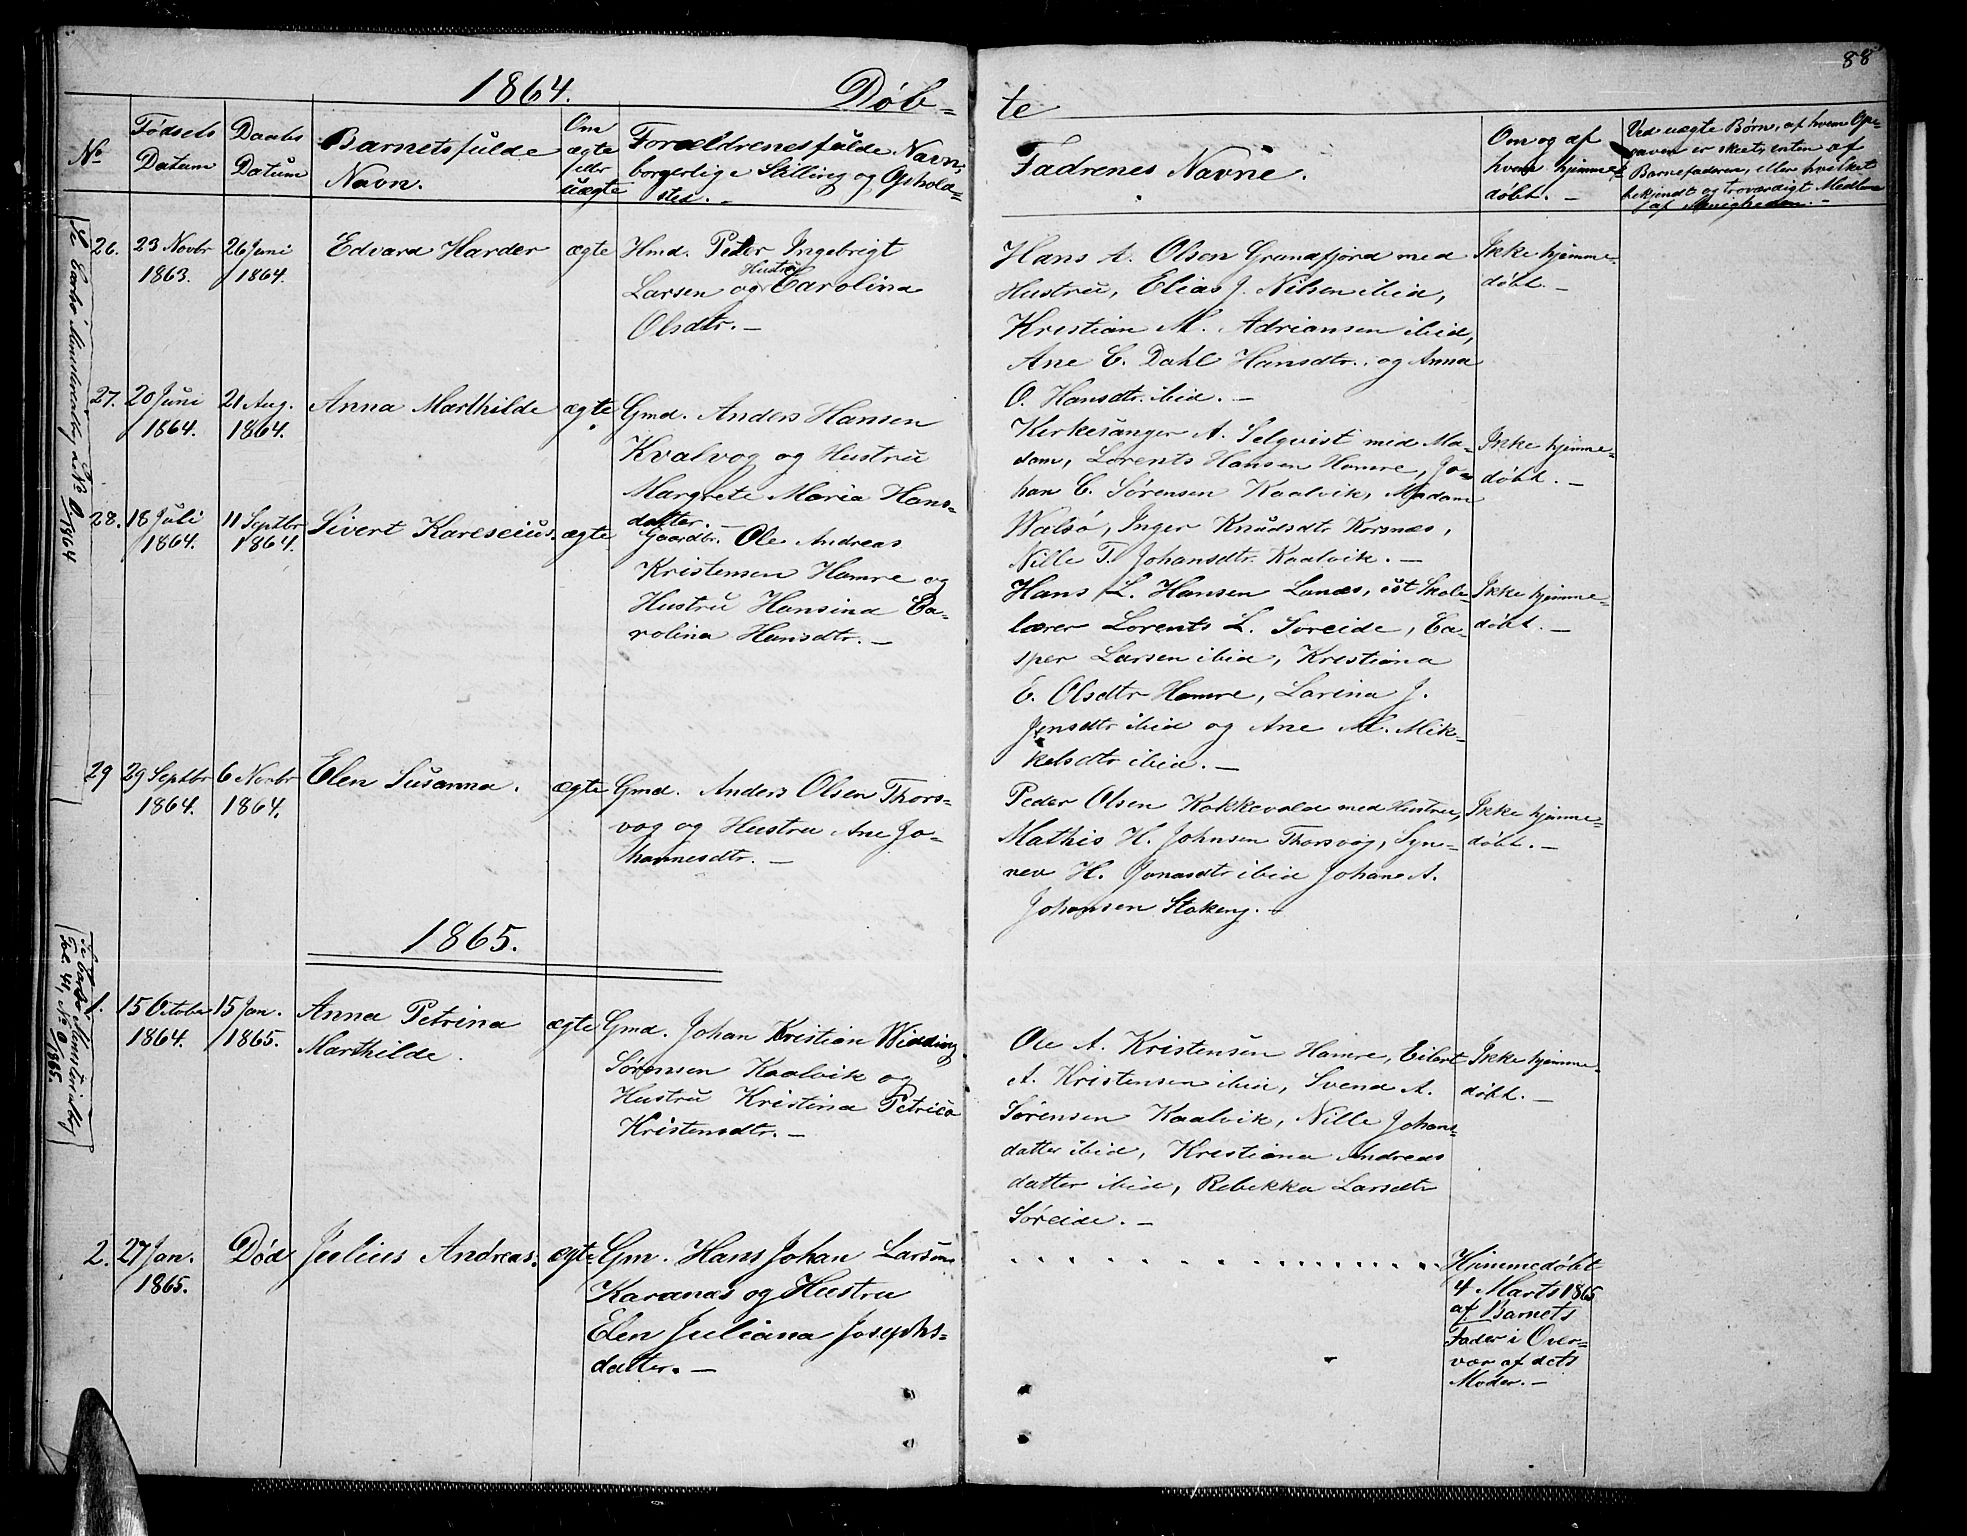 88
1864.
Døb-
te
No
Fødsels
Datum
Daabs
Datum
Barnets fulde
Navn.
Om
ægte
eller
uægte
Forældrenes fulde Navn,
borgerlige Stilling og Opholds-
sted. -
Faddrenes Navne.
Om og af
hvem hjemme-
døbt. -
Ved uægte Børn, af hvem Opg-
aven er skeet, enten af
Barnefaderen, eller hvilket
bekjendt og troværdigt Medlem
af Menigheden. -
26. 23 Novbr 26 Juni Edvard Harder ægte Hmd. Peder Ingebrigt
1863. 1864. Larsen og Hustru Carolina
Olsdtr. -
Hans A. Olsen Grundfjord med
Hustru, Elias J. Nilsen ibid,
Kristian M. Adriansen ibid,
Ane C. Dahl Hansdtr. og Anna
O. Hansdtr. ibid. -
Ikke hjemme-
døbt. -
27. 20 Juni 21 Aug. Anna Marthilde ægte Gmd. Anders Hansen
1864. 1864. Kvalvog og Hustru
Margrete Maria Hans-
datter. -
Kirkesanger A. Selqvist med Ma-
dam, Lorents Hansen Hamre, Jo-
han C. Sørensen Kaalvik, Madam
Walsø, Inger Knudsdtr Korsnæs,
Nille T. Johansdtr. Kaalvik. -
Ikke hjemme-
døbt. -
28. 18 Juli 11 Septbr Sivert Kareseius. ægte Gaardbr. Ole Andreas
1864. 1864. Kristensen Hamre og
Hustru Hansina Ca-
rolina Hansdtr. -
Hans L. Hansen Lanæs, Skole-
lærer Lorents L. Soreide, Ca-
sper Larsen ibid, Kristiana
E. Olsdtr Hamre, Larina J.
Jensdtr ibid og Ane M. Mik-
kelsdtr ibid. -
Ikke hjemme-
døbt. -
29 29 Septbr 6 Novbr Elen Susanna. ægte Gmd. Anders Olsen Thors-
1864. 1864. vog og Hustru Ane Jo-
hannesdtr. -
Peder Olsen Kokkevolde med Hustru,
Mathis H. Johnsen Thorsvog, Syn-
nev H. Jonasdtr ibid Johane A.
Johansen Stakeng. -
Ikke hjemme-
døbt. -
1865.
1. 15 October 15 Jan. Anna Petrina ægte Gmd. Johan Kristian Widding
1864. 1865. Marthilde. Sørensen Kaalvik og
Hustru Kristina Petrica
Kristensdtr. -
Ole A. Kristensen Hamre, Eilert
A. Kristensen ibid, Svend A.
Sørensen Kaalvik, Nille Johans-
datter ibid, Kristiana Andreas
datter ibid, Rebekka Larsdtr
Søreide. -
Ikke hjemme-
døbt. -
2. 27 Jan. Død Julius Andreas. ægte Gm. Hans Johan Larsen
1865. Karanæs og Hustru
Elen Juliana Josephs-
datter. -
Hjemmedøbt
4 Marts 1865
af Barnets
Fader i Over-
vær af dets
Moder. -